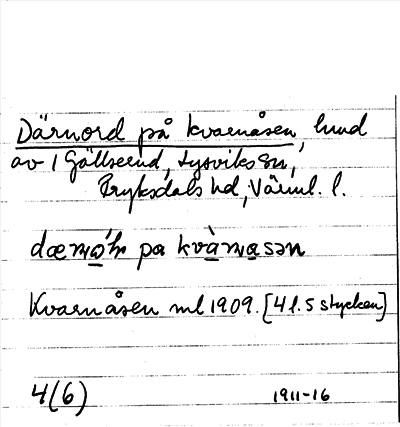 Därnord på kvarnåsen, hmd
av 1 Gällserud, Lysviks sn,
Fryksdals hd, Värml. l.
på
Kvarnåsen ml 1909. [4 l. 5 stycken]
4(6) 1911-16